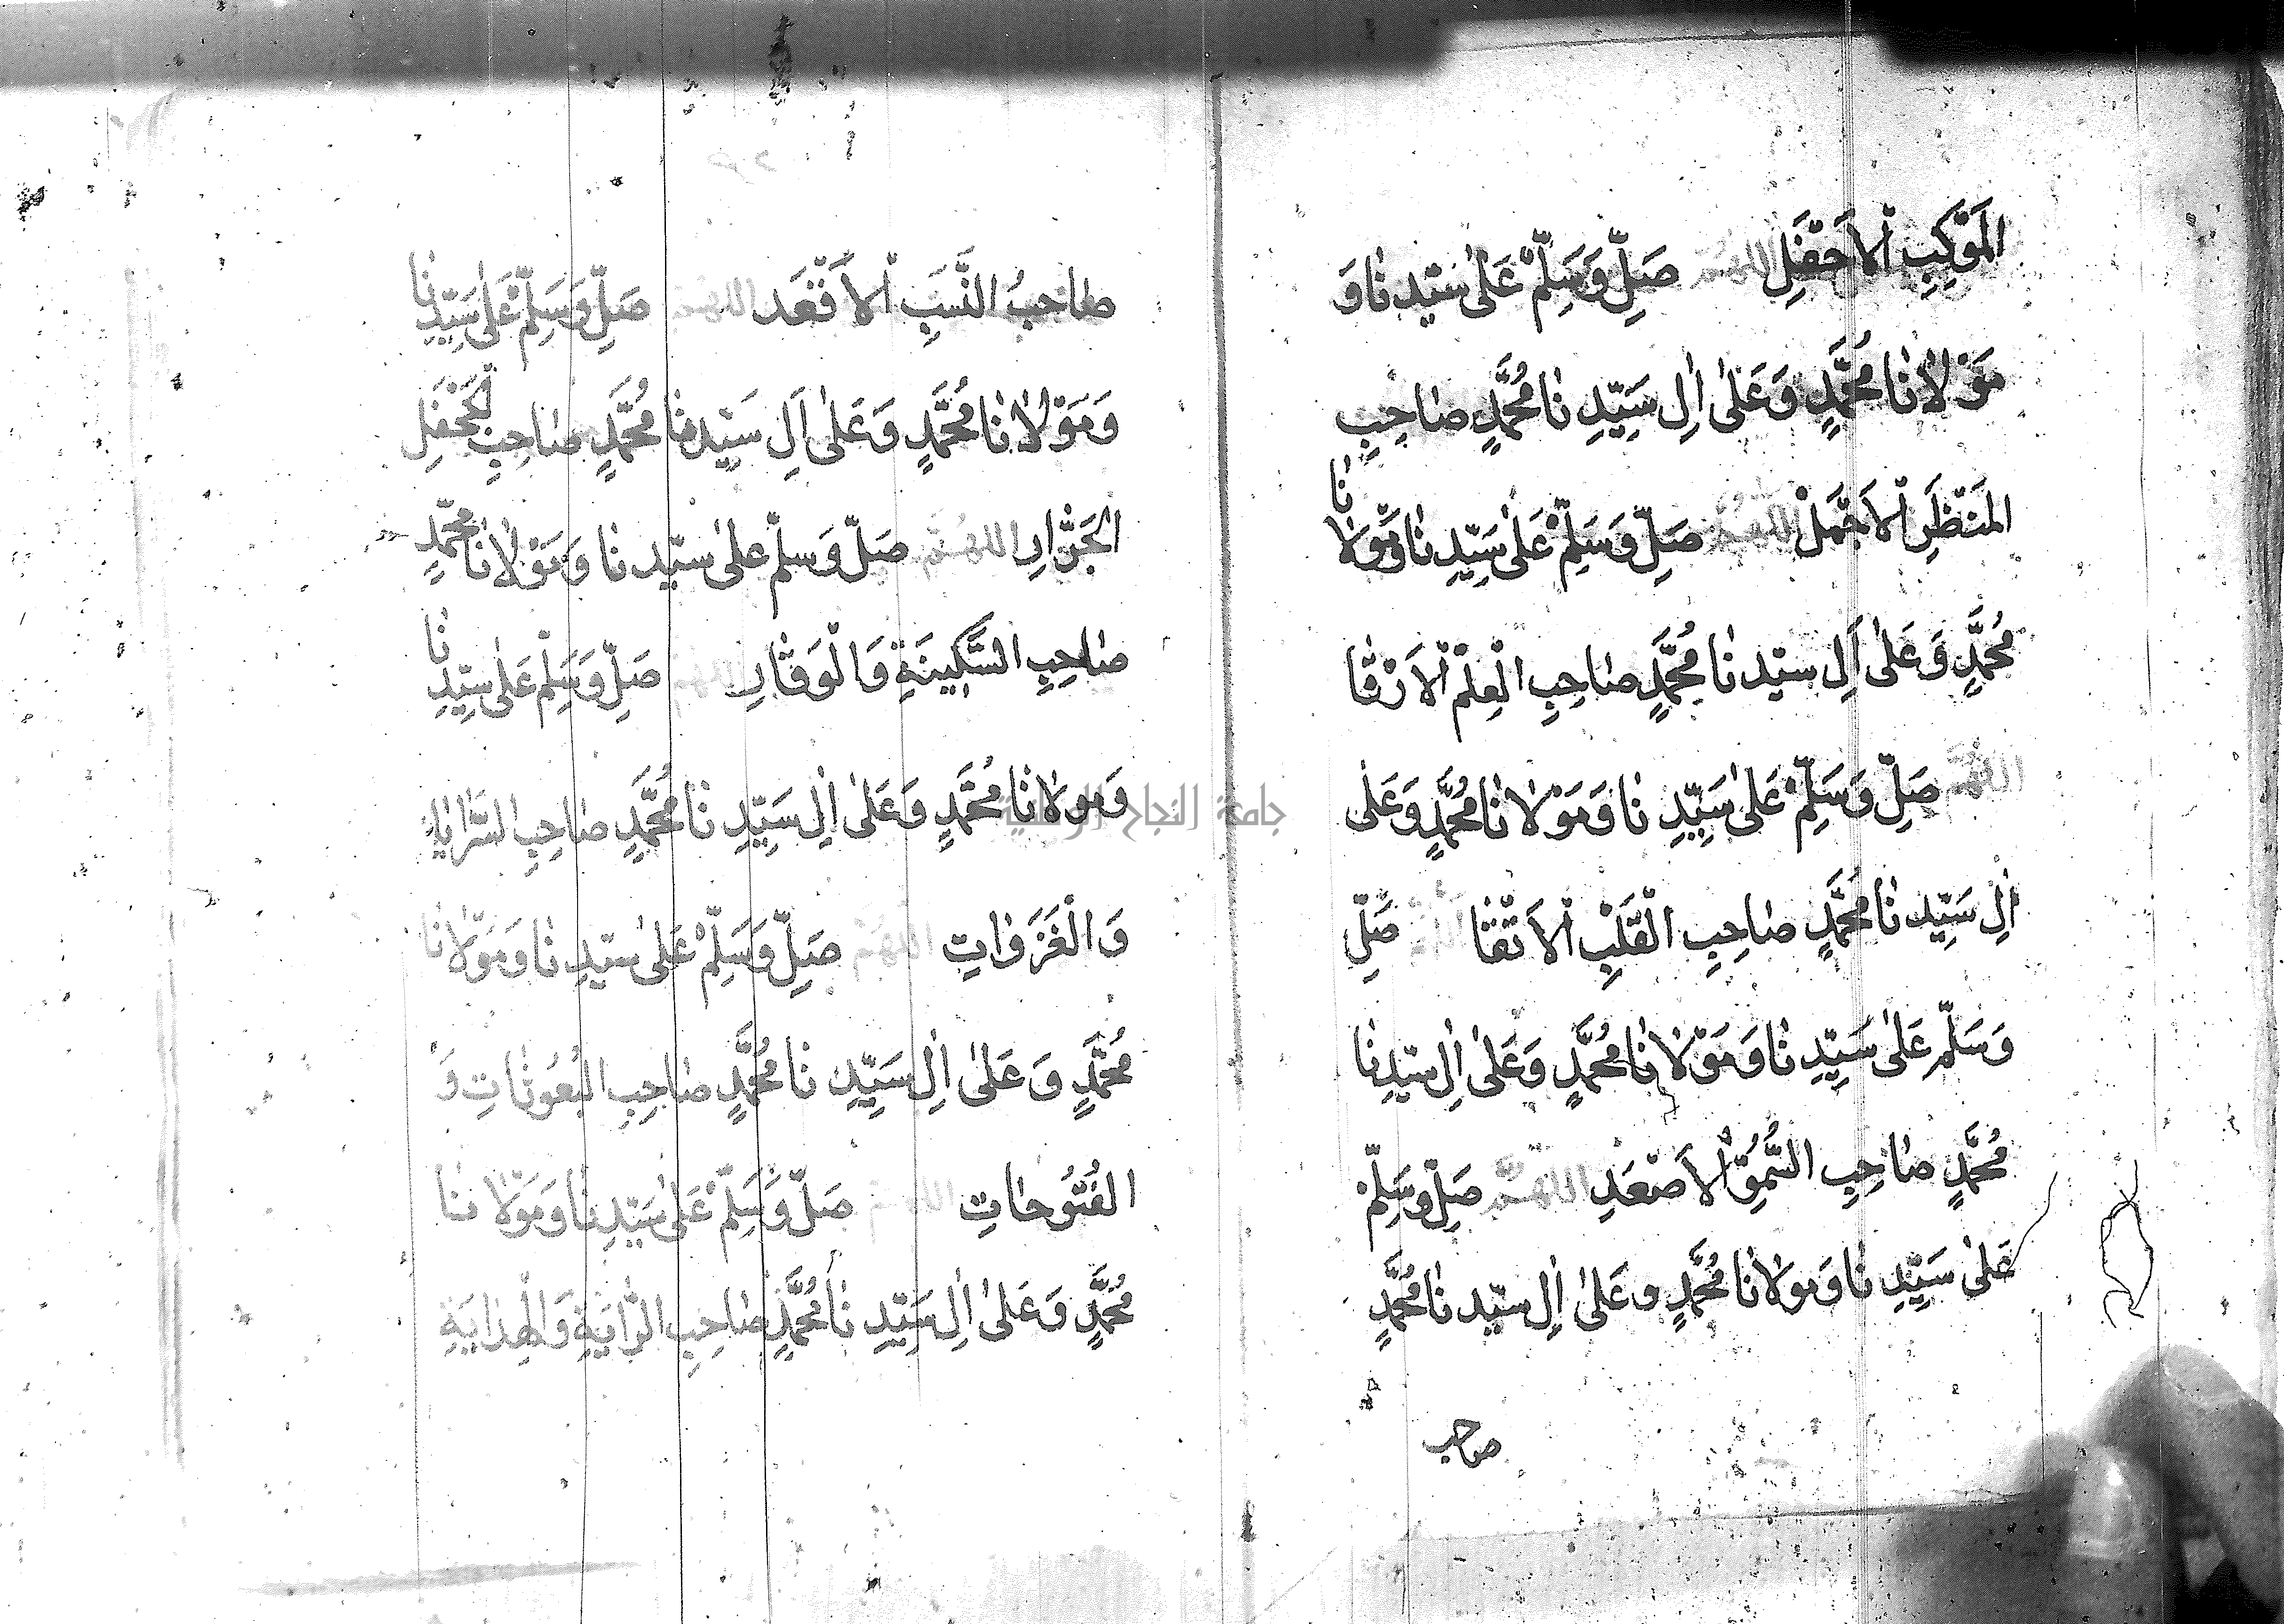 المَوْكِبِ الْاَحْفَلِ اللهم صَلِّ وَسَلِّمْ عَلىٰ سَيّدِ نٰا وَ
مَوْلاٰنٰا مُحَمَّدٍ وَعَلىٰ اٰلِ سَيِّدِ نٰا مُحَمَّدٍ صٰاحِبِ
المَنْظَرِ الْاَجْمَلْ اللهم صَلِّ وَسَلِّمْ عَلىٰ سَيِّدِ نٰا وَمَوْلاٰنٰا
مُحَمَّدٍ وَعَلىٰ اٰلِ سيّدِ نٰا مُحَمَّدٍ صٰاحِبِ الْعِلْمِ الْاَرْقٰا
اللهم صَلِّ وَسَلِّمْ عَلىٰ سَيِّدِ نٰا وَمَوْلاٰنٰا مُحَمَّدٍ وَعَلىٰ
اٰلِ سَيِّدِ نٰا مُحَمَّدٍ صٰاحِبِ الْقَلْبِ الْاَتْقٰا اللهم صَلِّ
وَسَلِّمْ عَلىٰ سَيِّدِ نٰا وَمَوْلاٰنٰا مُحَمَّدٍ وَعَلىٰ اٰلِ سيّدِنٰا
مُحَمَّدٍ صٰاحِبِ السُّمُوِّ الْاَصْعَدِ اللهم صَلِّ وَسَلِّمْ
عَلىٰ سَيِّدِ نٰا وَمولاٰنٰا مُحَمَّدٍ وعَلىٰ اٰلِ سيّدِ نٰا مُحَمَّدٍ
صاحب
صٰاحِبُ النَّسَبِ الْاَقْعَد اللهم صَلِّ وَسَلِّمْ عَلىٰ سَيِّدِنٰا
وَمَوْلاٰنٰا مُحَمَّدٍ وَعَلىٰ اٰلِ سَيّدِ نٰا مُحَمَّدٍ صٰاحِبِ الجَحْفَلِ
الجَرّٰارِ اللهم صَلّ وَسلّمْ علىٰ سيّدِ نٰا وَمَوْلاٰنٰا مُحَمَّدٍ
صٰاحِبِ السَّكِينَةِ وَالْوَقٰارِ اللهم صَلِّ وَسَلِّمْ عَلىٰ سيِّدِنٰا
وَمولاٰنٰا مُحَمَّدٍ وَعَلىٰ اٰلِ سَيِّدِ نٰا مُحَمَّدٍ صٰاحِبِ السَّرٰايٰا
وَالْغَزَوٰاتِ اللهم صَلِّ وَسَلِّمْ عَلىٰ سيّدِ نٰا وَمَوْلاٰنٰا
مُحَمَّدٍ وَعَلىٰ اٰلِ سَيِّدِ نٰا مُحَمَّدٍ صٰاحِبِ الْبُعُوثٰاتِ وَ
الفُتُوحٰاتِ اللهم صَلِّ وَسَلِّمْ عَلىٰ سَيّدِنٰا وَمَوْلاٰنٰا
مُحَمَّدٍ وَعَلىٰ اٰلِ سَيِّدِ نٰا مُحَمَّدٍ صٰاحِبِ الرّٰايَةِ وَالْهِدٰايَةِ
جامعة النجاح الوطنية